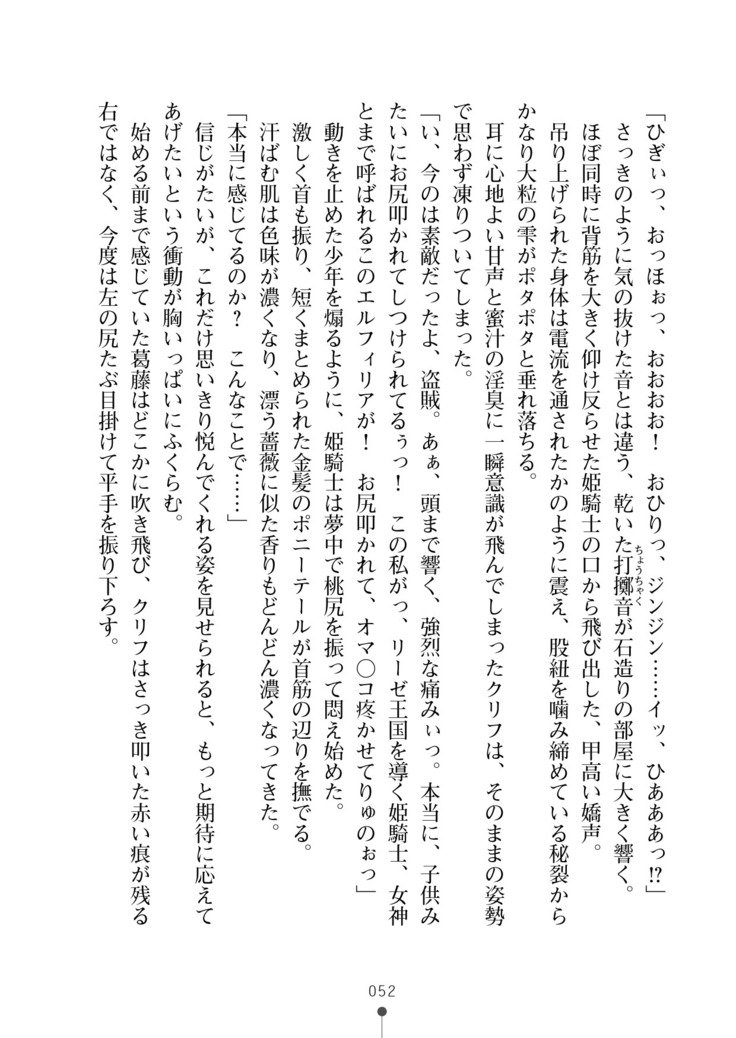 「ひぎぃっ、おっほぉっ、おおおお！　おひりっ、ジンジン……イッ、ひあああっ!?」
さっきのように気の抜けた音とは違う、乾いた打擲音が石造りの部屋に大きく響く。
ちょうちゃく
ほぼ同時に背筋を大きく仰け反らせた姫騎士の口から飛び出した、甲高い嬌声。
吊り上げられた身体は電流を通されたかのように震え、股紐を噛み締めている秘裂から
かなり大粒の雫がポタポタと垂れ落ちる。
耳に心地よい甘声と蜜汁の淫臭に一瞬意識が飛んでしまったクリフは、そのままの姿勢
で思わず凍りついてしまった。
「い、今のは素敵だったよ、盗賊。あぁ、頭まで響く、強烈な痛みぃっ。本当に、子供み
たいにお尻叩かれてしつけられてるぅっ！　この私がっ、リーゼ王国を導く姫騎士、女神
とまで呼ばれるこのエルフィリアが！　お尻叩かれて、オマ〇コ疼かせてりゅのぉっ」
動きを止めた少年を煽るように、姫騎士は夢中で桃尻を振って悶え始めた。
激しく首も振り、短くまとめられた金髪のポニーテールが首筋の辺りを撫でる。
汗ばむ肌は色味が濃くなり、漂う薔薇に似た香りもどんどん濃くなってきた。
「本当に感じてるのか？　こんなことで……」
信じがたいが、これだけ思いきり悦んでくれる姿を見せられると、もっと期待に応えて
あげたいという衝動が胸いっぱいにふくらむ。
始める前まで感じていた葛藤はどこかに吹き飛び、クリフはさっき叩いた赤い痕が残る
右ではなく、今度は左の尻たぶ目掛けて平手を振り下ろす。
052